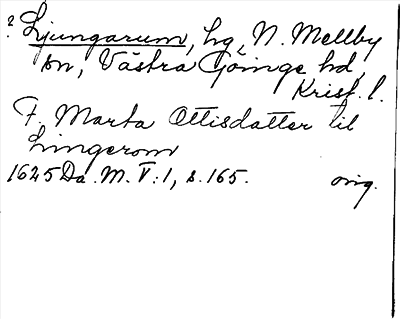 ? Ljungarum, hg, N. Mellby
sn, Västra Göinge hd,
Krist. l.
F. Marta Ottisdatter til
Liungerom
1625 Da. M. V:1, s. 165. orig.